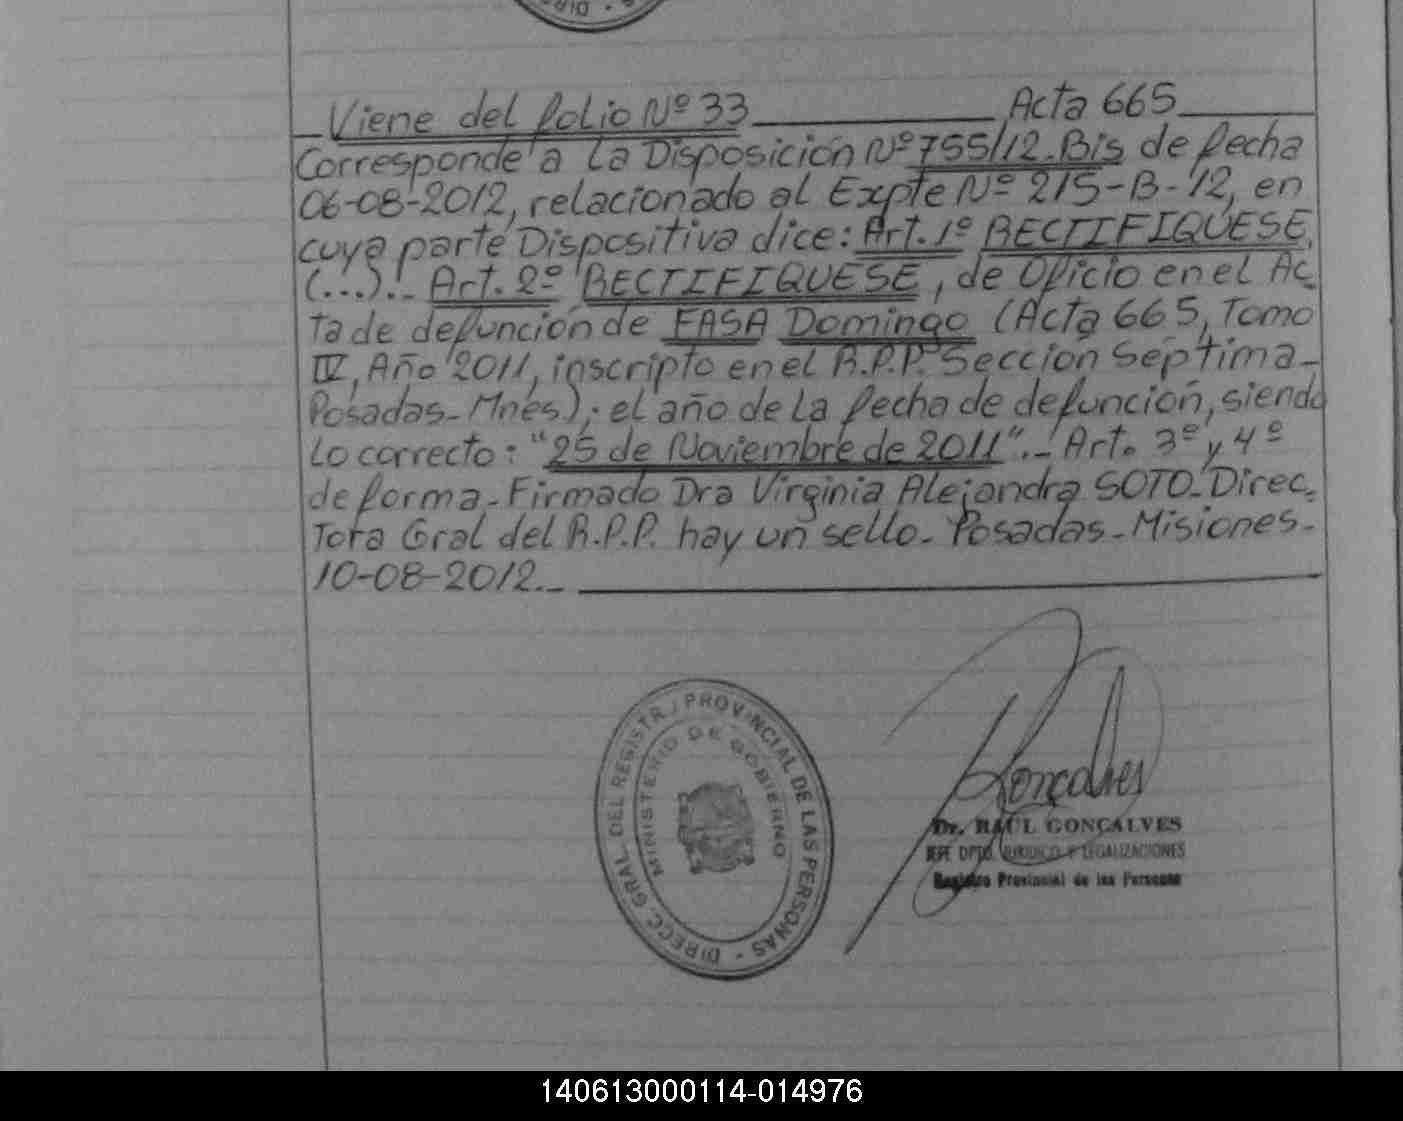 Viene del folio Nº 33 Acta 665
Corresponde a la Disposición Nº 755/12.Bis de fecha
06-08-2012, relacionado al Expte Nº 215-B-12, en
cuya parte Dispositiva dice: Art. 1º RECTIFIQUESE,
(...).- Art. 2º RECTIFIQUESE, de Oficio en el Ac_
ta de defunción de FASA Domingo (Acta 665, Tomo
IV, Año 2011, inscripto en el R.P.P. Sección Septima-
Posadas-Mnes); el año de la fecha de defunción, siendo
lo correcto: "25 de Noviembre de 2011".- Art. 3º y 4º
de forma. Firmado Dra Virginia Alejandra SOTO. Direc_
tora Gral del R.P.P. hay un sello. Posadas-Misiones-
10-08-2012.-
DIRECC. GRAL. DEL REGISTR. PROVINCIAL DE LAS PERSONAS
MINISTERIO DE GOBIERNO
Gonçalves
Dr. RAUL GONÇALVES
JEFE DPTO. JURIDICO Y LEGALIZACIONES
Registro Provincial de las Personas
140613000114-014976